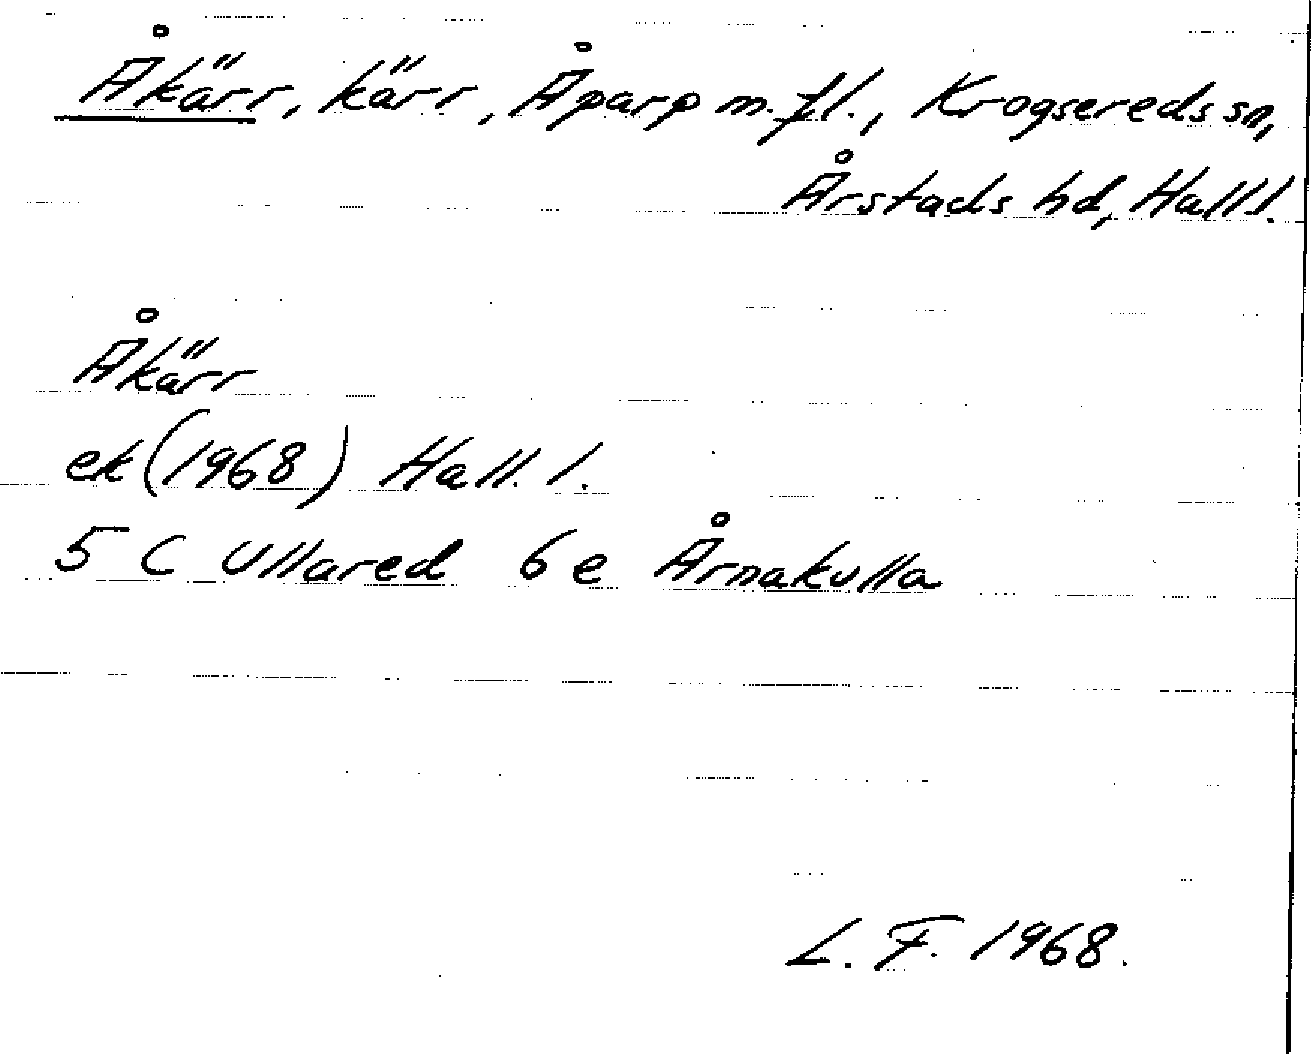 Åkärr, kärr, Åparp m.fl., Krogsereds sn,
Årstads hd, Hall l.
Åkärr
ek (1968) Hall. l.
5 C Ullared 6 e Årnakulla
L. F. 1968.